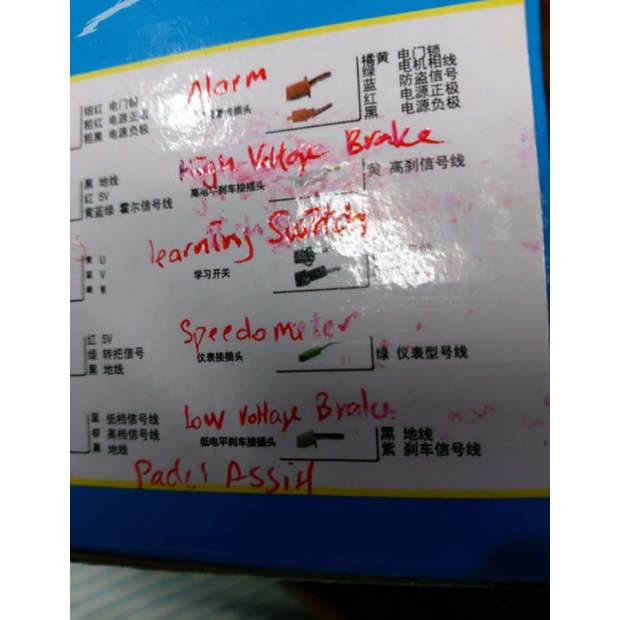 细红 电门锁
粗红 电源正极
粗黑 电源负极
Alarm
插头
橘黄 电门锁
绿 电机相线
蓝 防盗信号
红 电源正极
黑 电源负极
黑 地线
红 5V
黄蓝绿 霍尔信号线
High Voltage Brake
高电平刹车接插头
黄 高刹信号线
Learning Switch
学习开关
黄 U
蓝 V
红 5V
绿 转把信号
黑 地线
Speedometer
仪表接插头
绿 仪表型号线
蓝 低档信号线
棕 高档信号线
黑 地线
Low Voltage Brake
低电平刹车接插头
黑 地线
紫 刹车信号线
Padel Assist